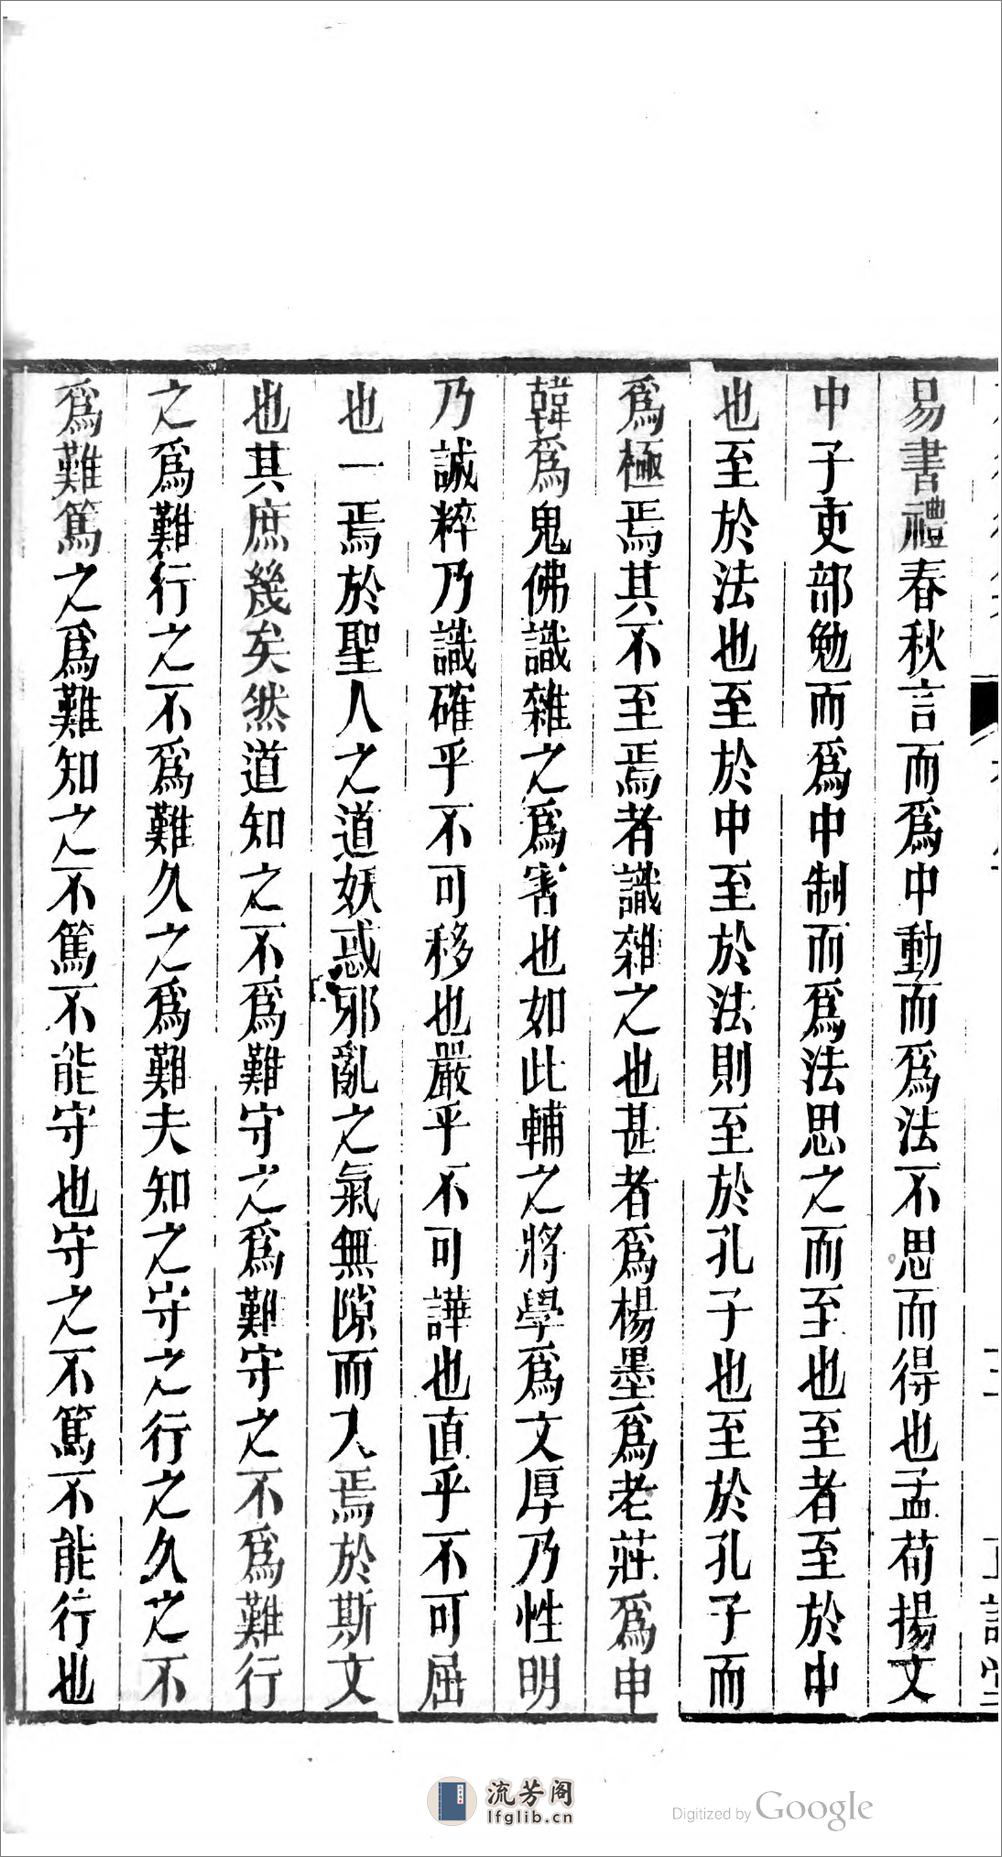 易書禮春秋言而爲中動而爲法不思而得也孟荀揚文
中子吏部勉而爲中制而爲法思之而至也至者至於中
也至於法也至於中至於法則至於孔子也至於孔子而
爲極焉其不至焉者識雜之也甚者爲楊墨爲老莊爲申
韓爲鬼佛識雜之爲害也如此輔之將學爲文厚乃性明
乃誠粹乃識確乎不可移也嚴乎不可譁也直乎不可屈
也一焉於聖人之道妖惑邪亂之氣無隙而入焉於斯文
也其庶幾矣然道知之不爲難守之爲難守之不爲難行
之爲難行之不爲難久之爲難夫知之守之行之久之不
爲難篤之爲難知之不篤不能守也守之不篤不能行也
流芳阁
lfglib.cn
Digitized by Google